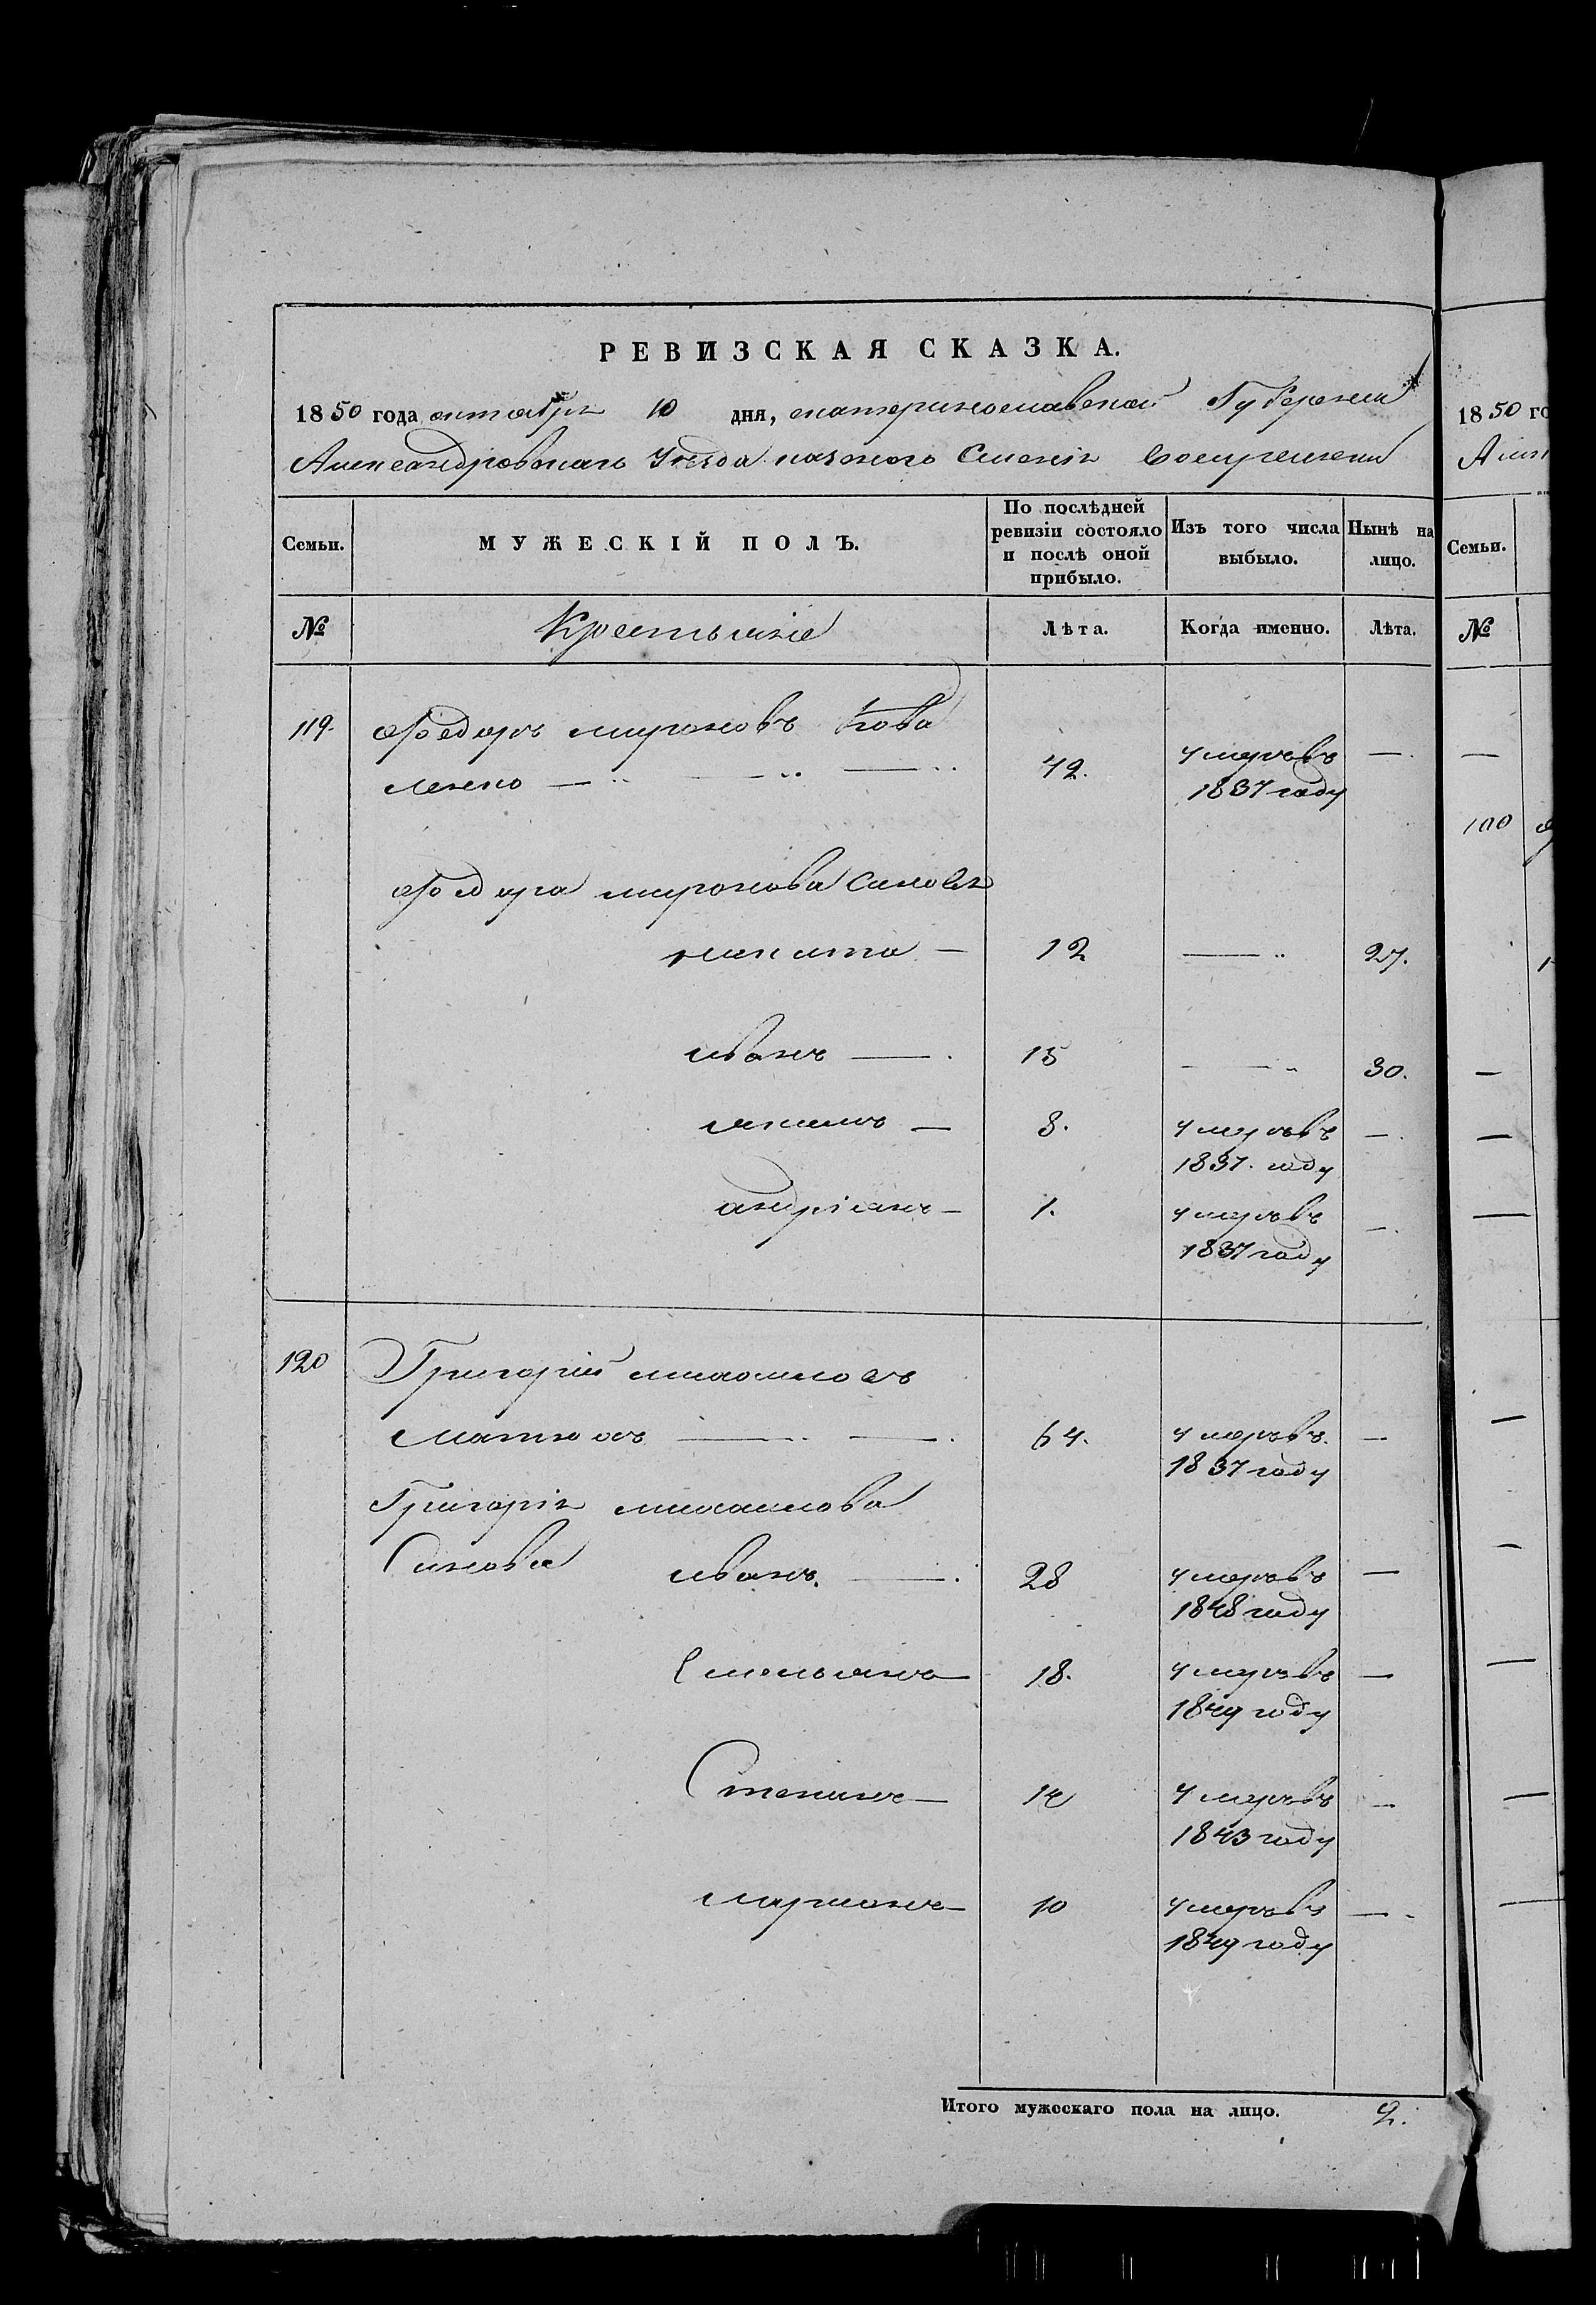 РЕВИЗСКАЯ СКАЗКА.
1850 года октября 10 дня, екатеринославской Губернии
Александровскаго Уезда казеного Селенія Воскресенки
Семьи. МУЖЕСКІЙ ПОЛЪ. По послѣдней ревизіи состояло и послѣ оной прибыло. Изъ того числа выбыло. Нынѣ на лицо.
№ Крестьяне Лѣта. Когда именно. Лѣта.
119. Федоръ мироновъ Кова
ленко — 42. умеръ въ —
1837 году
Федора миронова Синовя
никита — 12 — 27.
иванъ — 15 — 30.
8. умеръ въ —
1837. году
андріанъ — 1. умеръ въ —
1837 году
120 Григорій михаиловъ
64. умеръ въ —
1837 году
Григорія михаилова
Синовя иванъ. — 28 умеръ въ —
1848 году
Емельянъ — 18. умеръ въ —
1849 году
Степанъ — 14 умеръ въ —
1843 году
10 умеръ въ —
1849 году
Итого мужескаго пола на лицо. 2.
1850 го
Семьи.
№
100